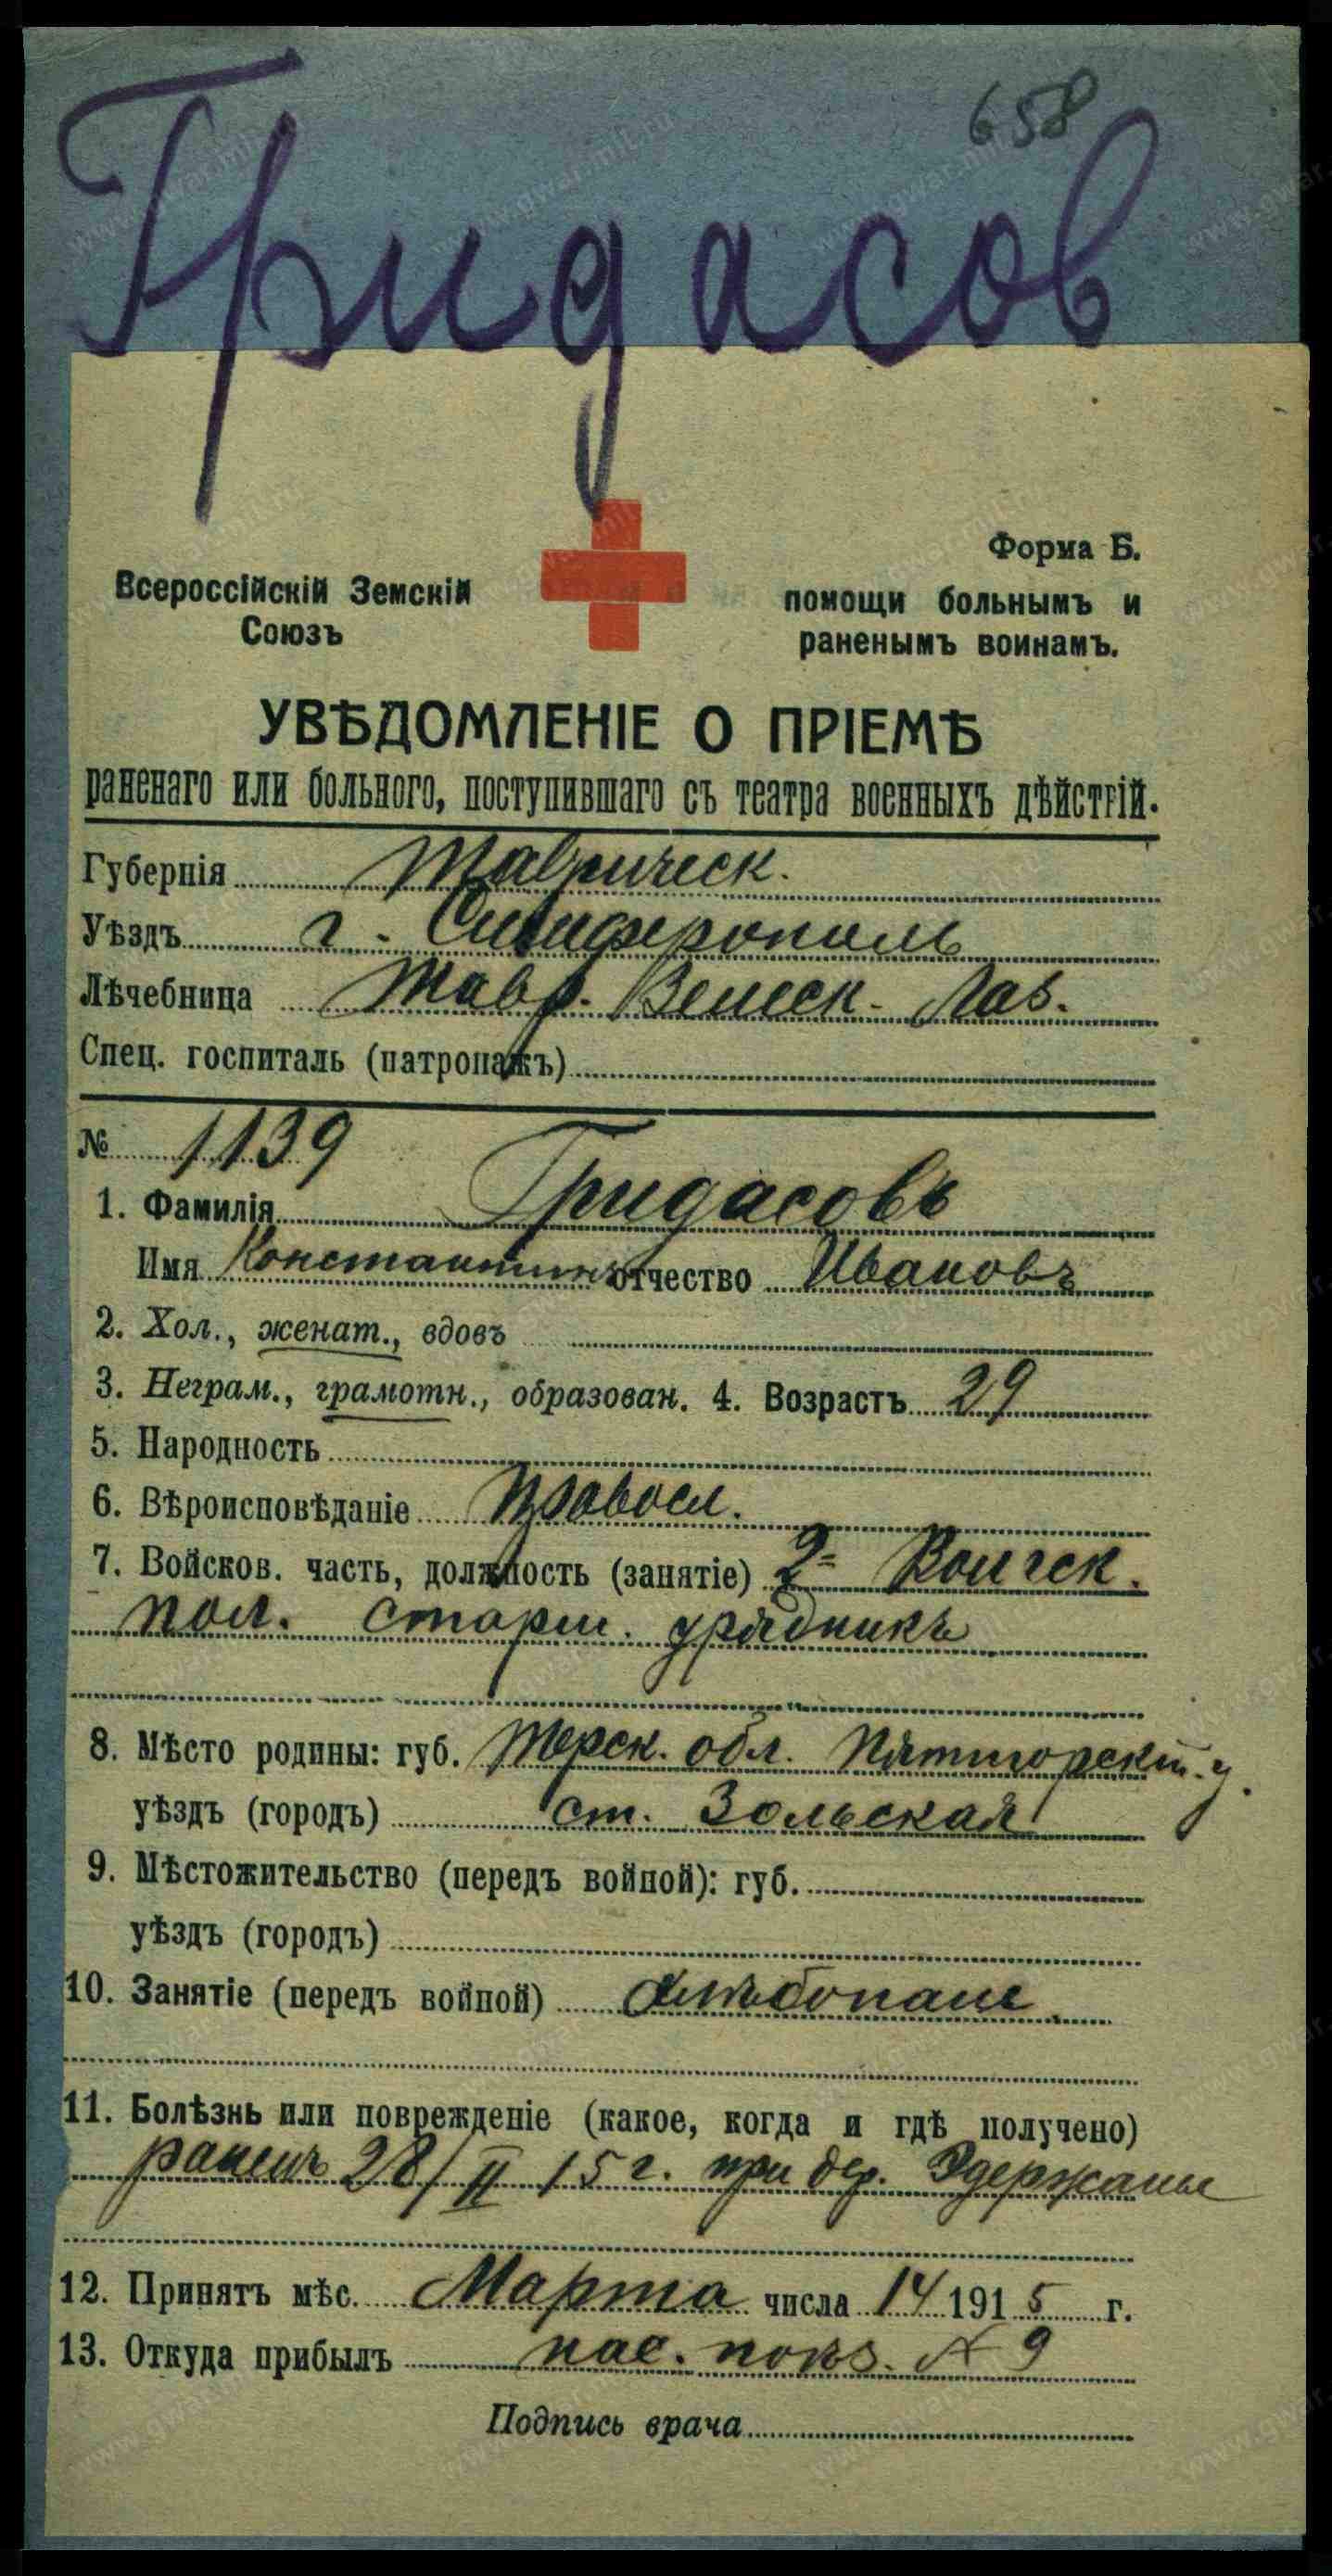 658
Гридасов
Форма Б.
Всероссійскій Земскій
Союзъ
помощи больнымъ и
раненымъ воинамъ.
УВѢДОМЛЕНІЕ О ПРІЕМѢ
раненаго или больного, поступившаго съ театра военныхъ дѣйствій.
Губернія Таврическ.
Уѣздъ г. Симферополь
Лѣчебница Тавр. Земск. Лаз.
Спец. госпиталь (патронажъ)
№ 1139
1. Фамилія Гридасовъ
Имя Константинъ отчество Ивановъ
2. Хол., женат., вдовъ
3. Неграм., грамотн., образован. 4. Возрастъ 29
5. Народность
6. Вѣроисповѣданіе Правосл.
7. Войсков. часть, должность (занятіе) 2й Волгск.
пол. старш. урядникъ
8. Мѣсто родины: губ. Терск. обл. Пятигорскій у.
уѣздъ (городъ) ст. Зольская
9. Мѣстожительство (передъ войной): губ.
уѣздъ (городъ)
10. Занятіе (передъ войной) хлѣбопаш.
11. Болѣзнь или поврежденіе (какое, когда и гдѣ получено)
раненъ 28/II 15 г. при дер.
12. Принятъ мѣс. Марта числа 14 1915 г.
13. Откуда прибылъ пас. поѣз. № 9
Подпись врача